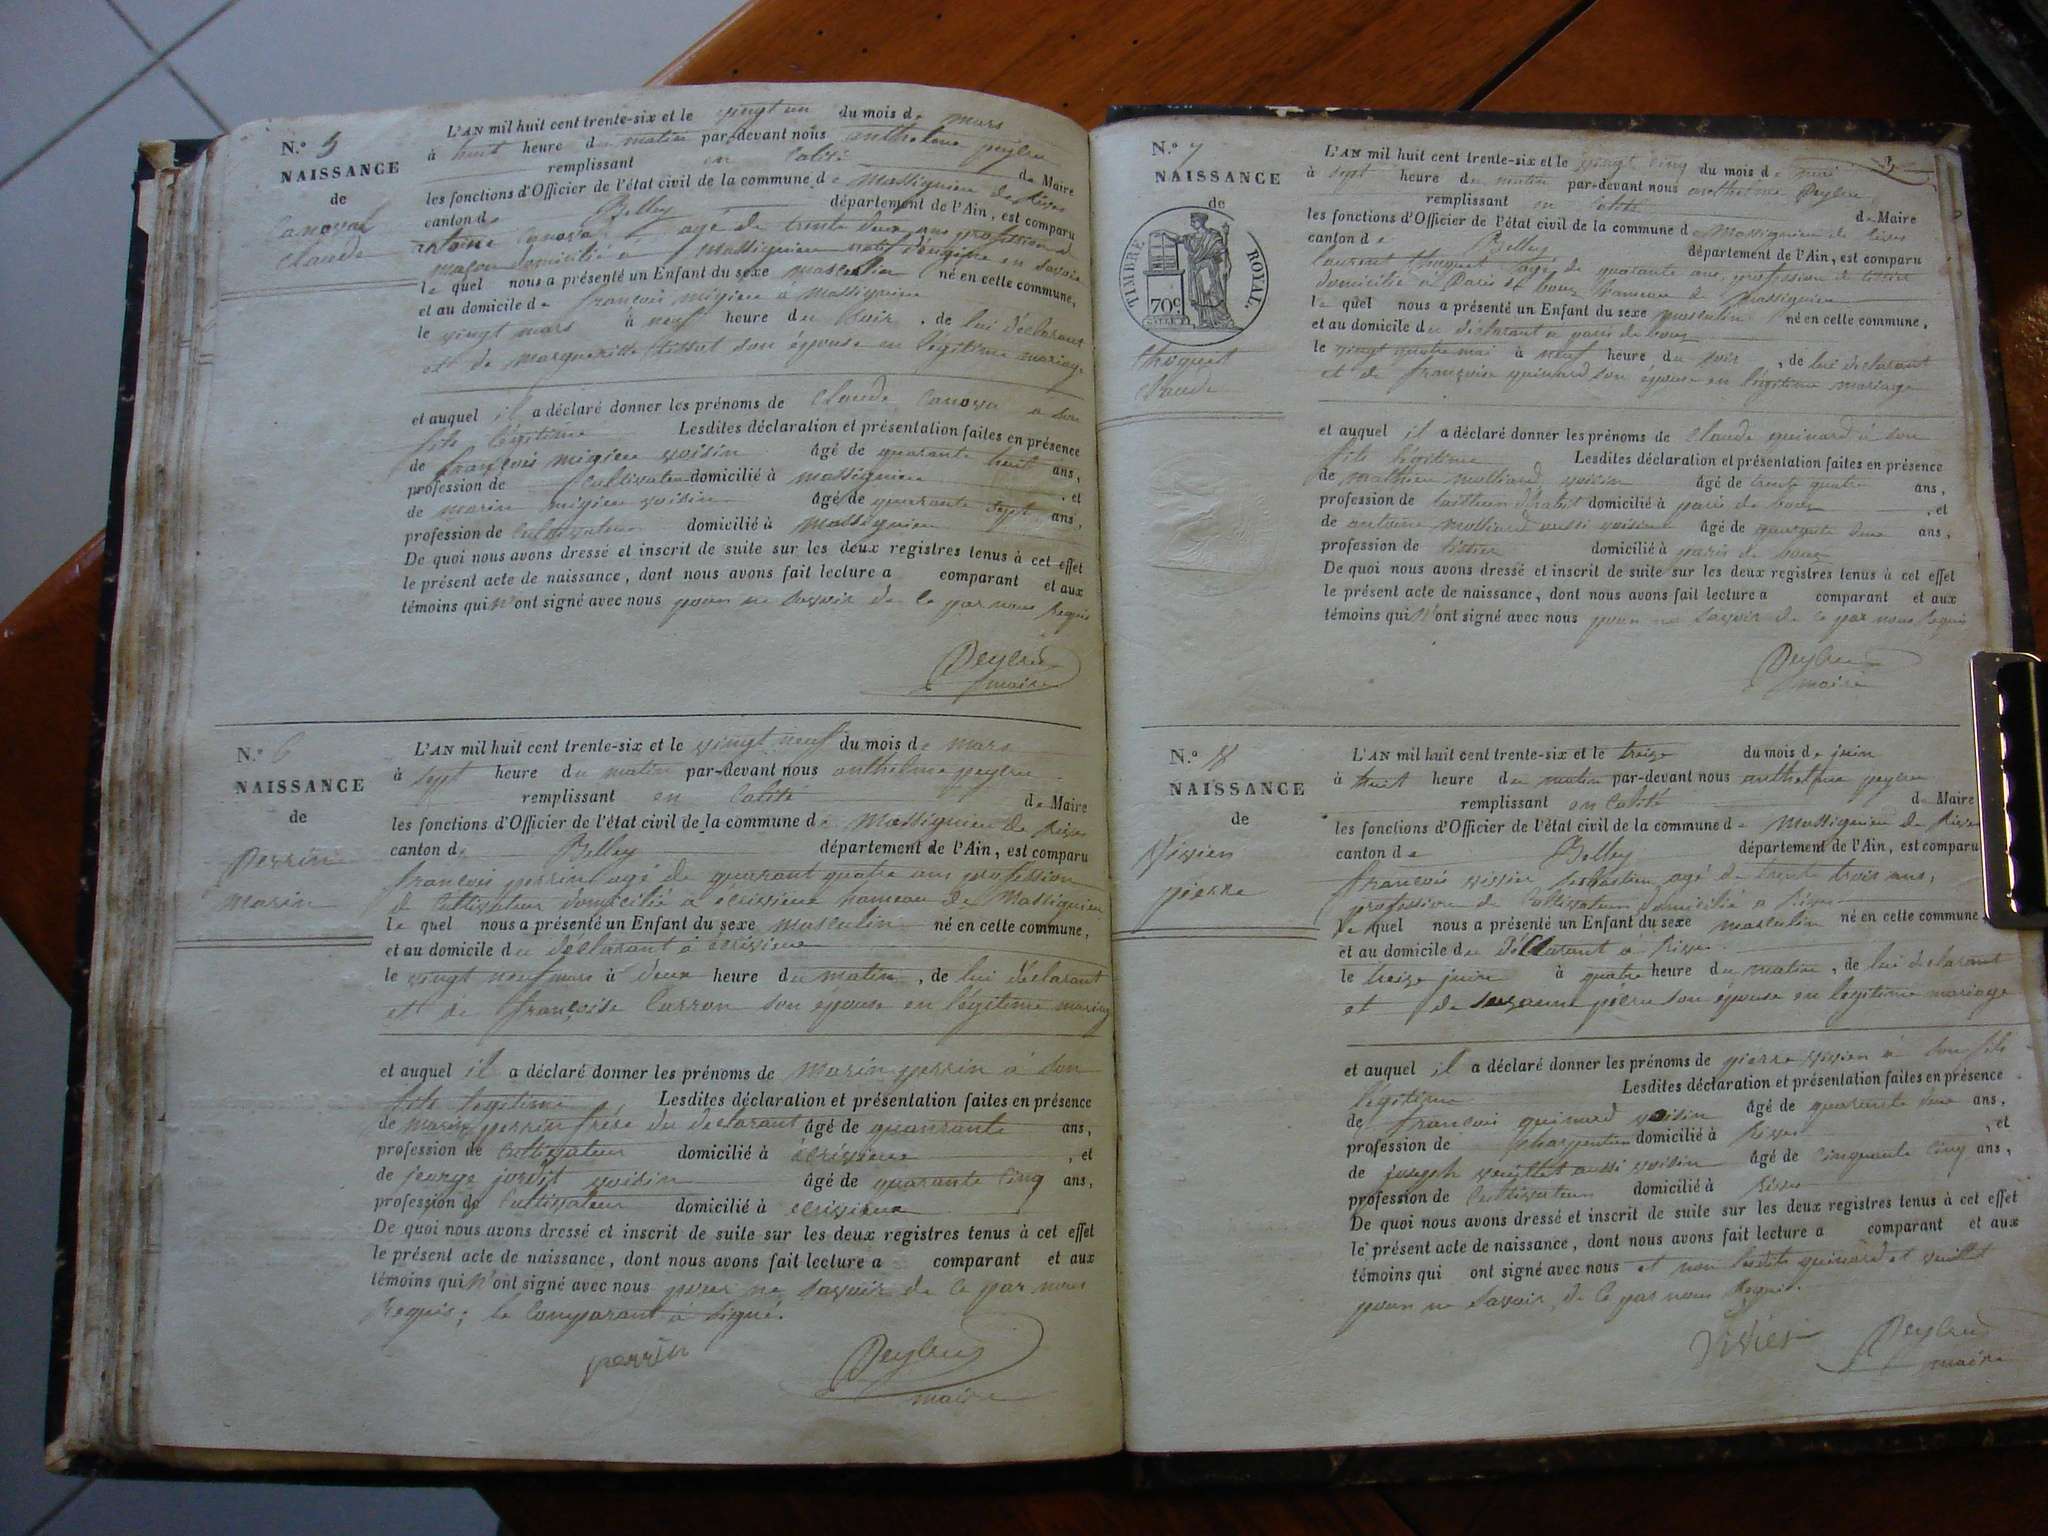 N.° 5
NAISSANCE
de
Canova
Claude
L'AN mil huit cent trente-six et le vingt un du mois de mars
à huit heure du matin par-devant nous anthelme peyleu
remplissant en calité de Maire
les fonctions d'Officier de l'état civil de la commune de Massignieu de Rives
canton de Belley département de l'Ain, est comparu
antoine Canova agé de trente deux ans profession de
maçon domicilié a Massignieu natif d'origine en Savoie
le quel nous a présenté un Enfant du sexe masculin né en cette commune,
et au domicile de françois migieu à Massignieu
le vingt mars à neuf heure du soir, de lui déclarant
et de margueritte tissut son épouse en légitime mariage
et auquel il a déclaré donner les prénoms de Claude Canova a son
fils légitime Lesdites déclaration et présentation faites en présence
de françois migieu voisin âgé de quarante huit ans,
profession de Cultivateur domicilié à massignieu, et
de marin migieu voisin âgé de quarante sept ans,
profession de Cultivateur domicilié à massignieu
De quoi nous avons dressé et inscrit de suite sur les deux registres tenus à cet effet
le présent acte de naissance, dont nous avons fait lecture a comparant et aux
témoins qui n'ont signé avec nous pour ne savoir de ce par nous Requis
Peyleu
maire
N.° 6
NAISSANCE
de
Perrin
Marin
L'AN mil huit cent trente-six et le vingt neuf du mois de mars
à sept heure du matin par-devant nous anthelme peyleu
remplissant en calité de Maire
les fonctions d'Officier de l'état civil de la commune de Massignieu de Rives
canton de Belley département de l'Ain, est comparu
françois perrin agé de quarant quatre ans profession
de Cultivateur domicilié a écrivieux hameau de Massignieu
le quel nous a présenté un Enfant du sexe masculin né en cette commune,
et au domicile du déclarant à écrivieux
le vingt neuf mars à deux heure du matin, de lui déclarant
et de françoise Carron son épouse en légitime mariag
et auquel il a déclaré donner les prénoms de marin perrin à son
fils legitime Lesdites déclaration et présentation faites en présence
de marin perrin frére du déclarant âgé de quanrante ans,
profession de Cultivateur domicilié à écrivieux, et
de george voisin âgé de quarante cinq ans,
profession de Cultivateur domicilié à ecrivieux
De quoi nous avons dressé et inscrit de suite sur les deux registres tenus à cet effet
le présent acte de naissance, dont nous avons fait lecture a comparant et aux
témoins qui n'ont signé avec nous pour ne savoir de ce par nous
Requis; le Comparant à signé.
perrin
Peyleu
maire
N.° 7
NAISSANCE
de
TIMBRE ROYAL
70c
thoquet
Claude
L'AN mil huit cent trente-six et le vingt cinq du mois de mai
à sept heure du matin par-devant nous anthelme Peyleu
remplissant en calité de Maire
les fonctions d'Officier de l'état civil de la commune de Massignieu de Rives
canton de Belley département de l'Ain, est comparu
laurent thoquet agé de quarante ans, profession de tissier
domicilié a Paris de bouz hameau de Massignieu
le quel nous a présenté un Enfant du sexe masculin né en cette commune,
et au domicile du déclarant a paris de bouz
le vingt quatre mai à neuf heure du soir, de lui déclarant
et de françoise guinard son épouse en légitime mariage
et auquel il a déclaré donner les prénoms de Claude guinard à son
fils légitime Lesdites déclaration et présentation faites en présence
de mathieu molliard voisin âgé de trente quatre ans,
profession de tailleur d'habit domicilié à paris de bouz, et
de antoine molliard aussi voisin âgé de quarante deux ans,
profession de tissier domicilié à paris de bouz
De quoi nous avons dressé et inscrit de suite sur les deux registres tenus à cet effet
le présent acte de naissance, dont nous avons fait lecture a comparant et aux
témoins qui n'ont signé avec nous pour ne savoir de ce par nous Requis
Peyleu
maire
N.° 8
NAISSANCE
de
Vivien
pierre
L'AN mil huit cent trente-six et le treize du mois de juin
à huit heure du matin par-devant nous anthelme peyleu
remplissant en calité de Maire
les fonctions d'Officier de l'état civil de la commune de Massignieu de Rives
canton de Belley département de l'Ain, est comparu
francois vivien sebastien agé de trente trois ans,
profession de Cultivateur domicilié a Rives
le quel nous a présenté un Enfant du sexe masculin né en cette commune,
et au domicile du déclarant à Rives
le treize juin à quatre heure du matin, de lui declarant
et de suzanne son épouse en legitime mariage
et auquel il a déclaré donner les prénoms de pierre vivien à son fils
legitime Lesdites déclaration et présentation faites en présence
de francois guinard voisin âgé de quarante deux ans,
profession de charpentier domicilié à Rives, et
de joseph veuillet aussi voisin âgé de cinquante cinq ans,
profession de Cultivateur domicilié à Rives
De quoi nous avons dressé et inscrit de suite sur les deux registres tenus à cet effet
le présent acte de naissance, dont nous avons fait lecture a comparant et aux
témoins qui ont signé avec nous et non lesdits guinard et veuillet
pour ne savoir de ce par nous Requis.
Vivien
Peyleu
maire